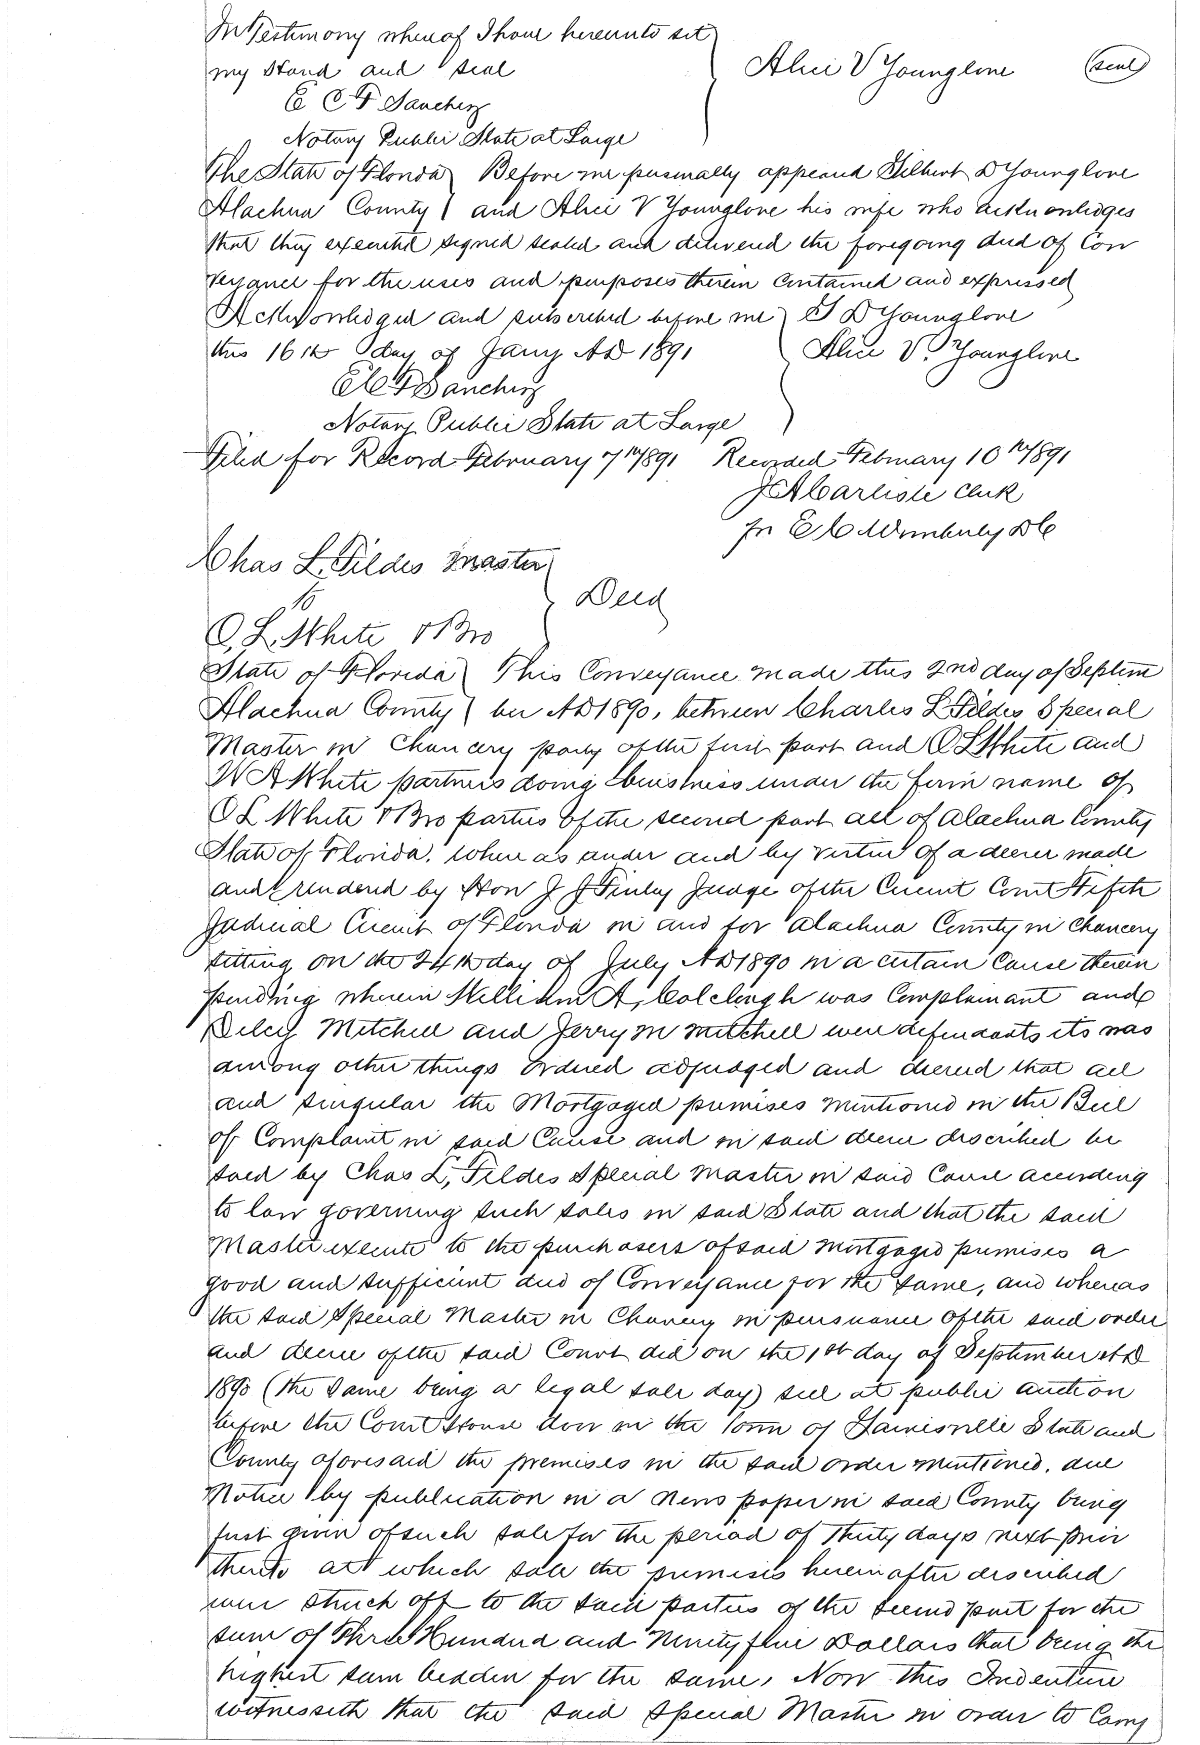 In Testimony whereof I have hereunto set
my Hand and seal Alice V Younglove (seal)
E C F Sanchez
Notary Public State at Large
The State of Florida Before me personally appeard Gilbert D Younglove
Alachua County and Alice V Younglove his wife who acknowledges
that they executed signed sealed and delivered the foregoing deed of Con
veyance for the uses and purposes therein contained and expressed
Acknowledged and subscribed before me G D Younglove
this 16th day of Jany AD 1891 Alice V. Younglove
E C F Sanchez
Notary Public State at Large
Filed for Record February 7th 1891 Recorded February 10th 1891
J A Carlisle Clerk
pr E C Wimberly DC
Chas L. Fildes Master
to Deed
O. L. White & Bro
State of Florida This Conveyance made this 2nd day of Septem
Alachua County ber AD 1890, between Charles L Fildes Special
Master in Chancery party of the first part and O L White and
W A White partners doing buisness under the firm name of
O L White & Bro parties of the second part all of Alachua County
State of Florida. Where as under and by virtue of a decree made
and rendered by Hon J J Finley Judge of the Circuit Court Fifth
Judicial Circuit of Florida in and for Alachua County in Chancery
sitting on the 24th day of July AD 1890 in a certain cause therein
pending wherein William A, Colclough was Complainant and
Dilcy Mitchell and Jerry M Mitchell were defendants its was
among other things ordered adjudged and decreed that all
and singular the Mortgaged premises mentioned in the Bill
of Complaint in said Cause and in said decree described be
sold by Chas L, Fildes Special Master in said Cause according
to law governing such sales in said State and that the said
Master execute to the purchasers of said mortgaged premises a
good and sufficient deed of Conveyance for the same, and whereas
the said Special Master in Chancery in persuance of the said order
and decree of the said Court did on the 1st day of September AD
1890 (the same being a legal sale day) sell at public auction
before the Court House door in the Town of Gainesville State and
County aforesaid the premises in the said order mentioned. due
Notice by publication in a news paper in said County being
first given of such sale for the period of Thirty days next prior
thereto at which sale the premises herein after described
were struck off to the said parties of the second part for the
sum of Three Hundred and Ninety five Dollars that being the
highest sum bidden for the same, Now this Indenture
witnesseth that the said Special Master in order to Carry